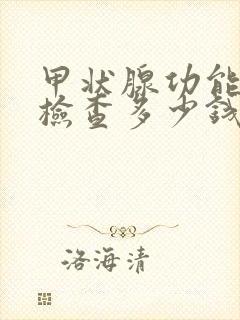 甲状腺功能
檢查多少钱
洛海清